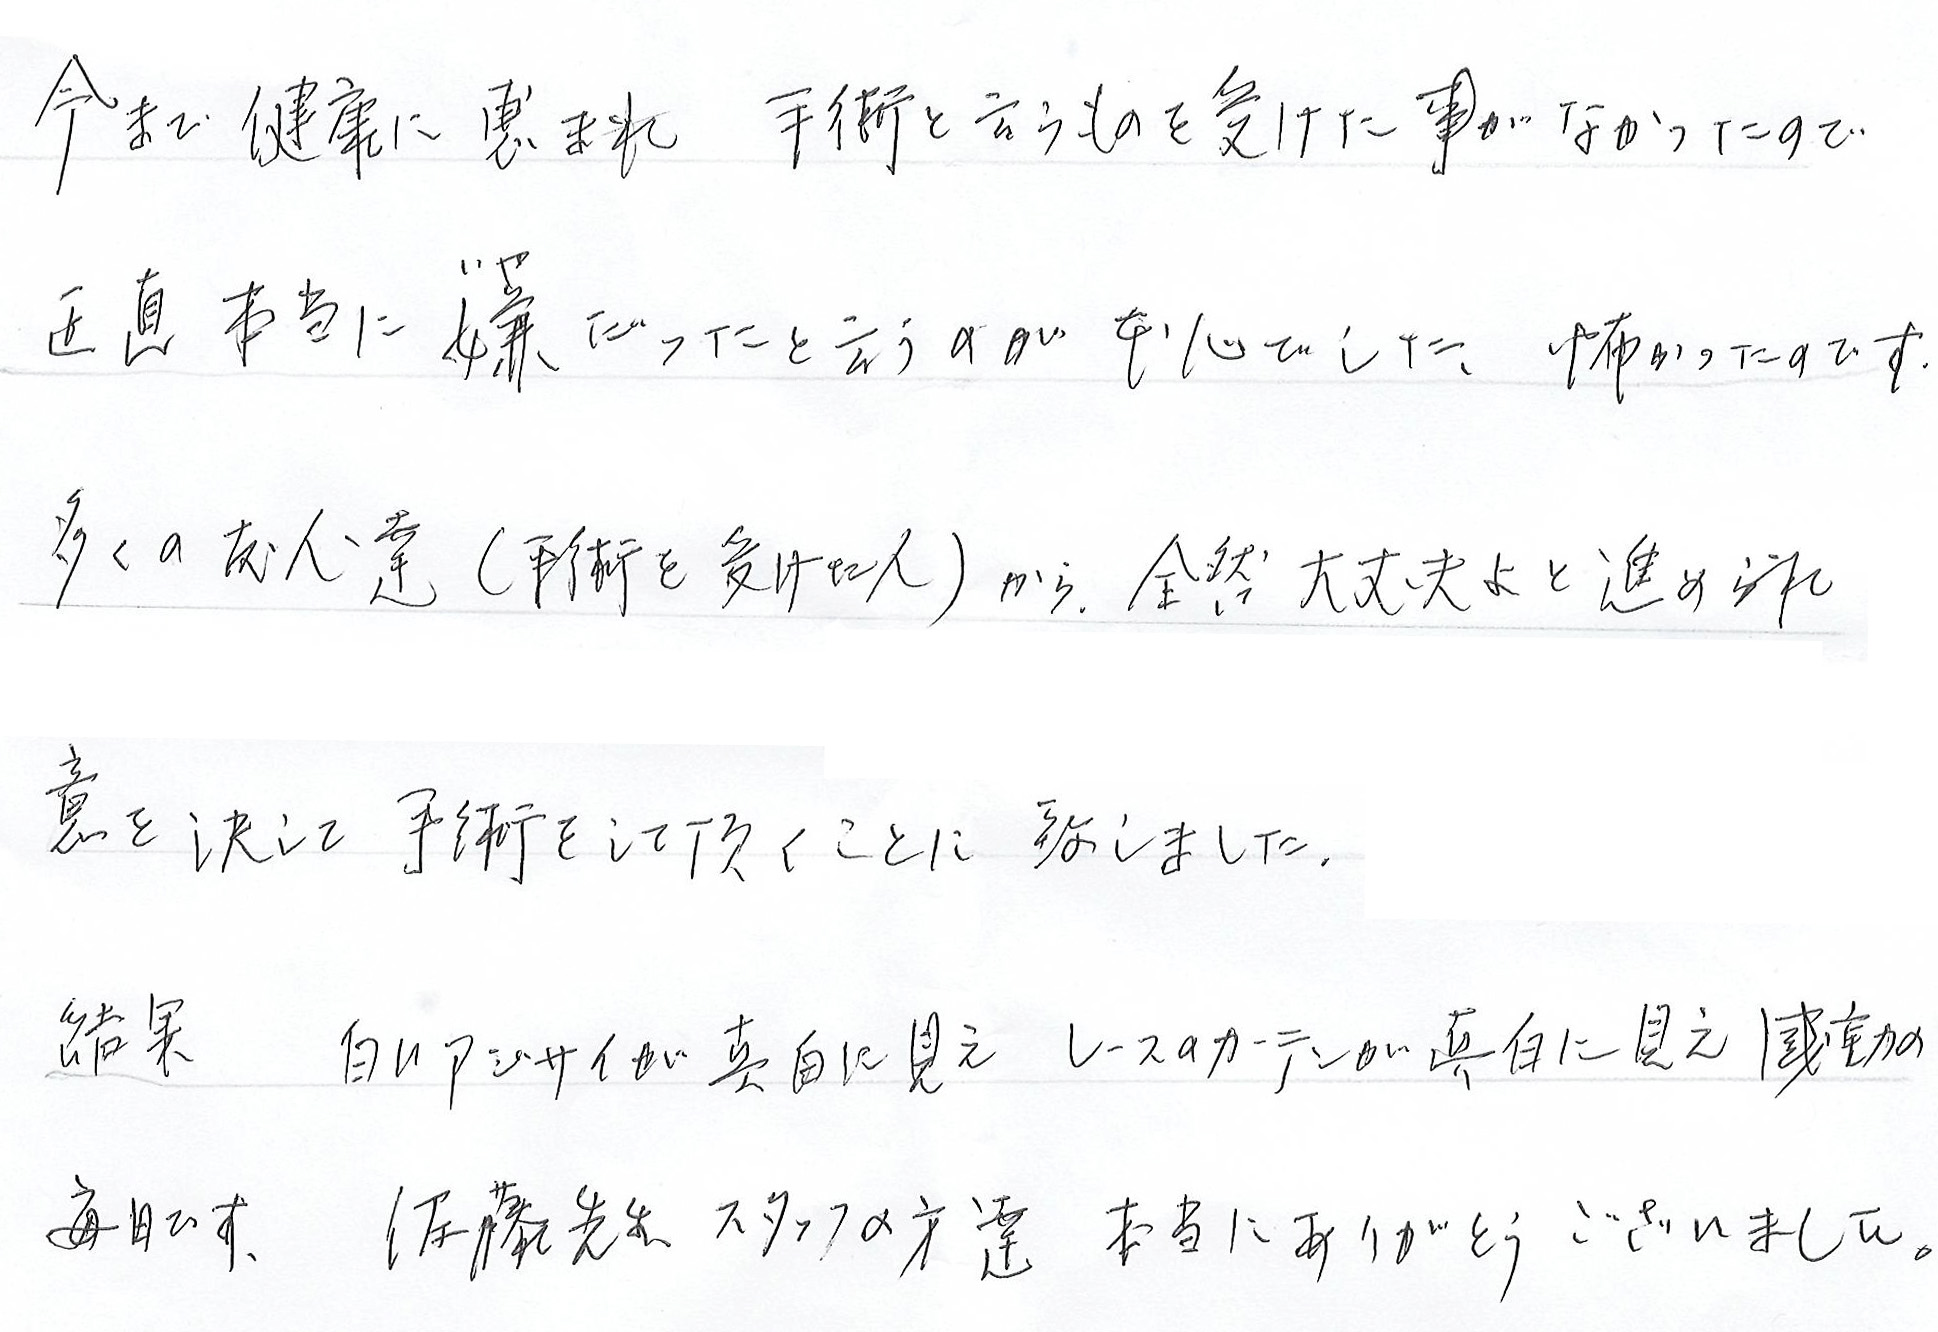 今まで健康に恵まれ 手術と言うものを受けた事がなかったので
いや
正直 本当に嫌だったと言うのが本心でした、怖かったのです.
多くの友人達(手術を受けた人)から、全然大丈夫よと進められ
意を決して手術をして頂くことに致しました.
結果 白いアジサイが真白に見え レースのカーテンが真白に見え感動の
毎日です、 佐藤先生 スタッフの方達 本当にありがとうございました。